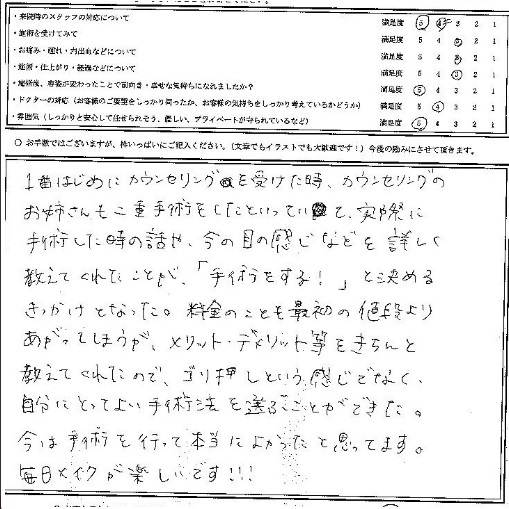 ・来院時のスタッフの対応について 満足度 5 4 3 2 1
・施術を受けてみて 満足度 5 4 3 2 1
・お痛み・腫れ・内出血などについて 満足度 5 4 3 2 1
・施術・仕上がり・経過などについて 満足度 5 4 3 2 1
・施術後、容姿が変わったことで前向き・幸せな気持ちになれましたか? 満足度 5 4 3 2 1
・ドクターの対応(お客様のご要望をしっかり伺ったか、お客様の気持ちをしっかり考えているかどうか) 満足度 5 4 3 2 1
・雰囲気(しっかりと安心して任せられそう、優しい、プライベートが守られているなど) 満足度 5 4 3 2 1
○ お手数ではございますが、枠いっぱいにご記入ください。(文章でもイラストでも大歓迎です!)今後の励みにさせて頂きます。
1番はじめにカウンセリングを受けた時、カウンセリングの
お姉さんも二重手術をしたといっていて、実際に
手術した時の話や、今の目の感じなどを詳しく
教えてくれたことが、「手術をする!」と決める
きっかけとなった。料金のことも最初の値段より
あがってしまうが、メリット・デメリット等をきちんと
教えてくれたので、ゴリ押しという感じでなく、
自分にとってよい手術法を選ることができた。
今は手術を行って本当によかったと思ってます。
毎日メイクが楽しいです!!!